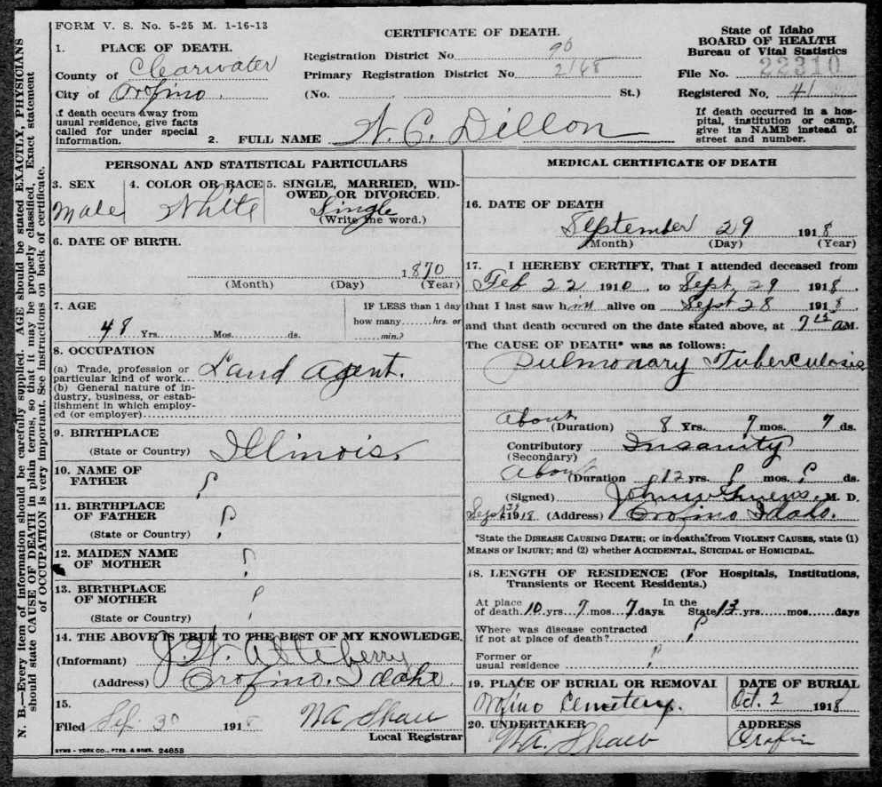 FORM V. S. No. 5-25 M. 1-16-13
CERTIFICATE OF DEATH.
State of Idaho
BOARD OF HEALTH
Bureau of Vital Statistics
File No. 22310
Registered No. 41
If death occurred in a hospital, institution or camp, give its NAME instead of street and number.
1. PLACE OF DEATH.
County of Clearwater
City of Orofino
Registration District No. 96
Primary Registration District No. 2168
(No. St.)
If death occurs away from usual residence, give facts called for under special information.
2. FULL NAME N. C. Dillon
PERSONAL AND STATISTICAL PARTICULARS
3. SEX
Male
4. COLOR OR RACE
White
5. SINGLE, MARRIED, WIDOWED, OR DIVORCED.
Single
(Write the word.)
6. DATE OF BIRTH.
1870
(Month) (Day) (Year)
7. AGE
48 Yrs. Mos. ds.
IF LESS than 1 day
how many hrs. or
min.?
8. OCCUPATION
(a) Trade, profession or particular kind of work Land Agent.
(b) General nature of industry, business, or establishment in which employed (or employer)
9. BIRTHPLACE
(State or Country) Illinois
10. NAME OF FATHER ?
11. BIRTHPLACE OF FATHER ?
(State or Country)
12. MAIDEN NAME OF MOTHER ?
13. BIRTHPLACE OF MOTHER ?
(State or Country)
14. THE ABOVE IS TRUE TO THE BEST OF MY KNOWLEDGE,
(Informant) J. W. Atteberry
(Address) Orofino, Idaho
15.
Filed Sep. 30 1918 WA Shaw
Local Registrar
SYMS-YORK CO., PTRS. & BDRS. 24653
MEDICAL CERTIFICATE OF DEATH
16. DATE OF DEATH
September 29 1918
(Month) (Day) (Year)
17. I HEREBY CERTIFY, That I attended deceased from
Feb 22 1910, to Sept 29 1918,
that I last saw him alive on Sept 28 1918
and that death occured on the date stated above, at 7 15 AM.
The CAUSE OF DEATH* was as follows:
Pulmonary Tuberculosis
About
(Duration) 8 Yrs. 7 mos. 7 ds.
Contributory (Secondary) Insanity
About
(Duration 12 yrs. ? mos. ? ds.
(Signed) M. D.
Sept 1918 (Address) Orofino Idaho.
*State the DISEASE CAUSING DEATH; or in deaths from VIOLENT CAUSES, state (1) MEANS OF INJURY; and (2) whether ACCIDENTAL, SUICIDAL OR HOMICIDAL.
18. LENGTH OF RESIDENCE (For Hospitals, Institutions, Transients or Recent Residents.)
At place of death 10 yrs. 7 mos. 7 days In the State 13 yrs. mos. days
Where was disease contracted if not at place of death? ?
Former or usual residence ?
19. PLACE OF BURIAL OR REMOVAL
Orofino Cemetery.
DATE OF BURIAL
Oct. 2 1918
20. UNDERTAKER
WA. Shaw
ADDRESS
Orofino
N. B.—Every item of information should be carefully supplied. AGE should be stated EXACTLY, PHYSICIANS
should state CAUSE OF DEATH in plain terms, so that it may be properly classified. Exact statement
of OCCUPATION is very important. See instructions on back of certificate.